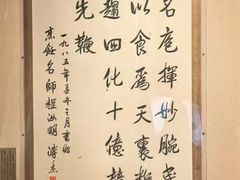 名庖揮妙腕民
以食為天裹糧
趨四化十億
先鞭
一九八五年冬月書贈
烹飪名師程汝明 溥杰